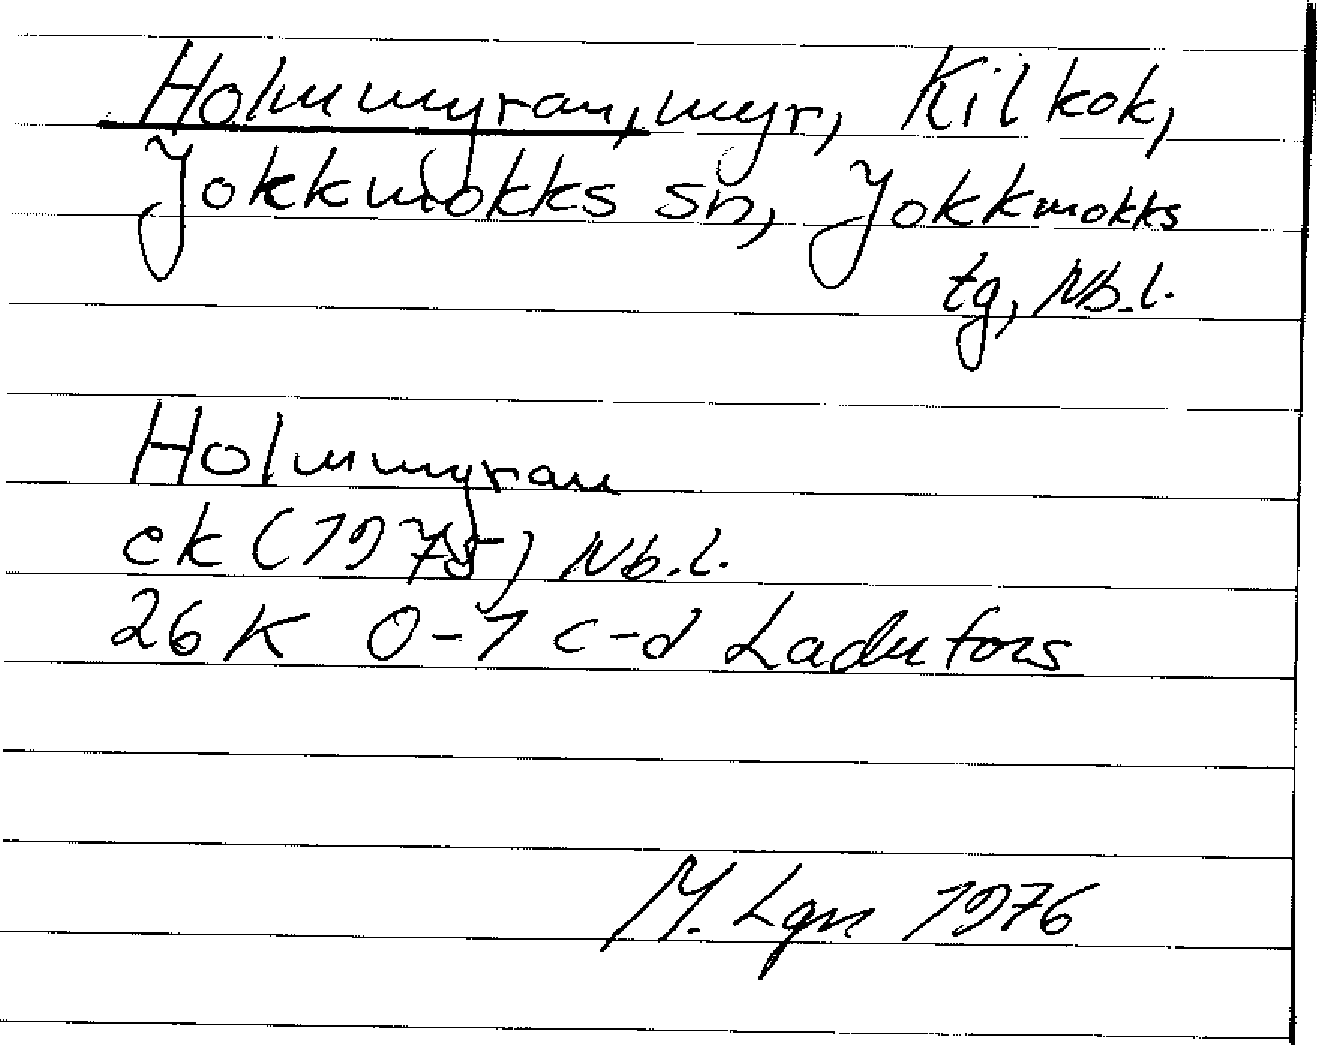 Holmmyran, myr, Kilkok,
Jokkmokks sn, Jokkmokks
tg, Nb.l.
Holmmyran
ek (1975) Nb.l.
26K 0-1 c-d Ladufors
M. Lgn 1976